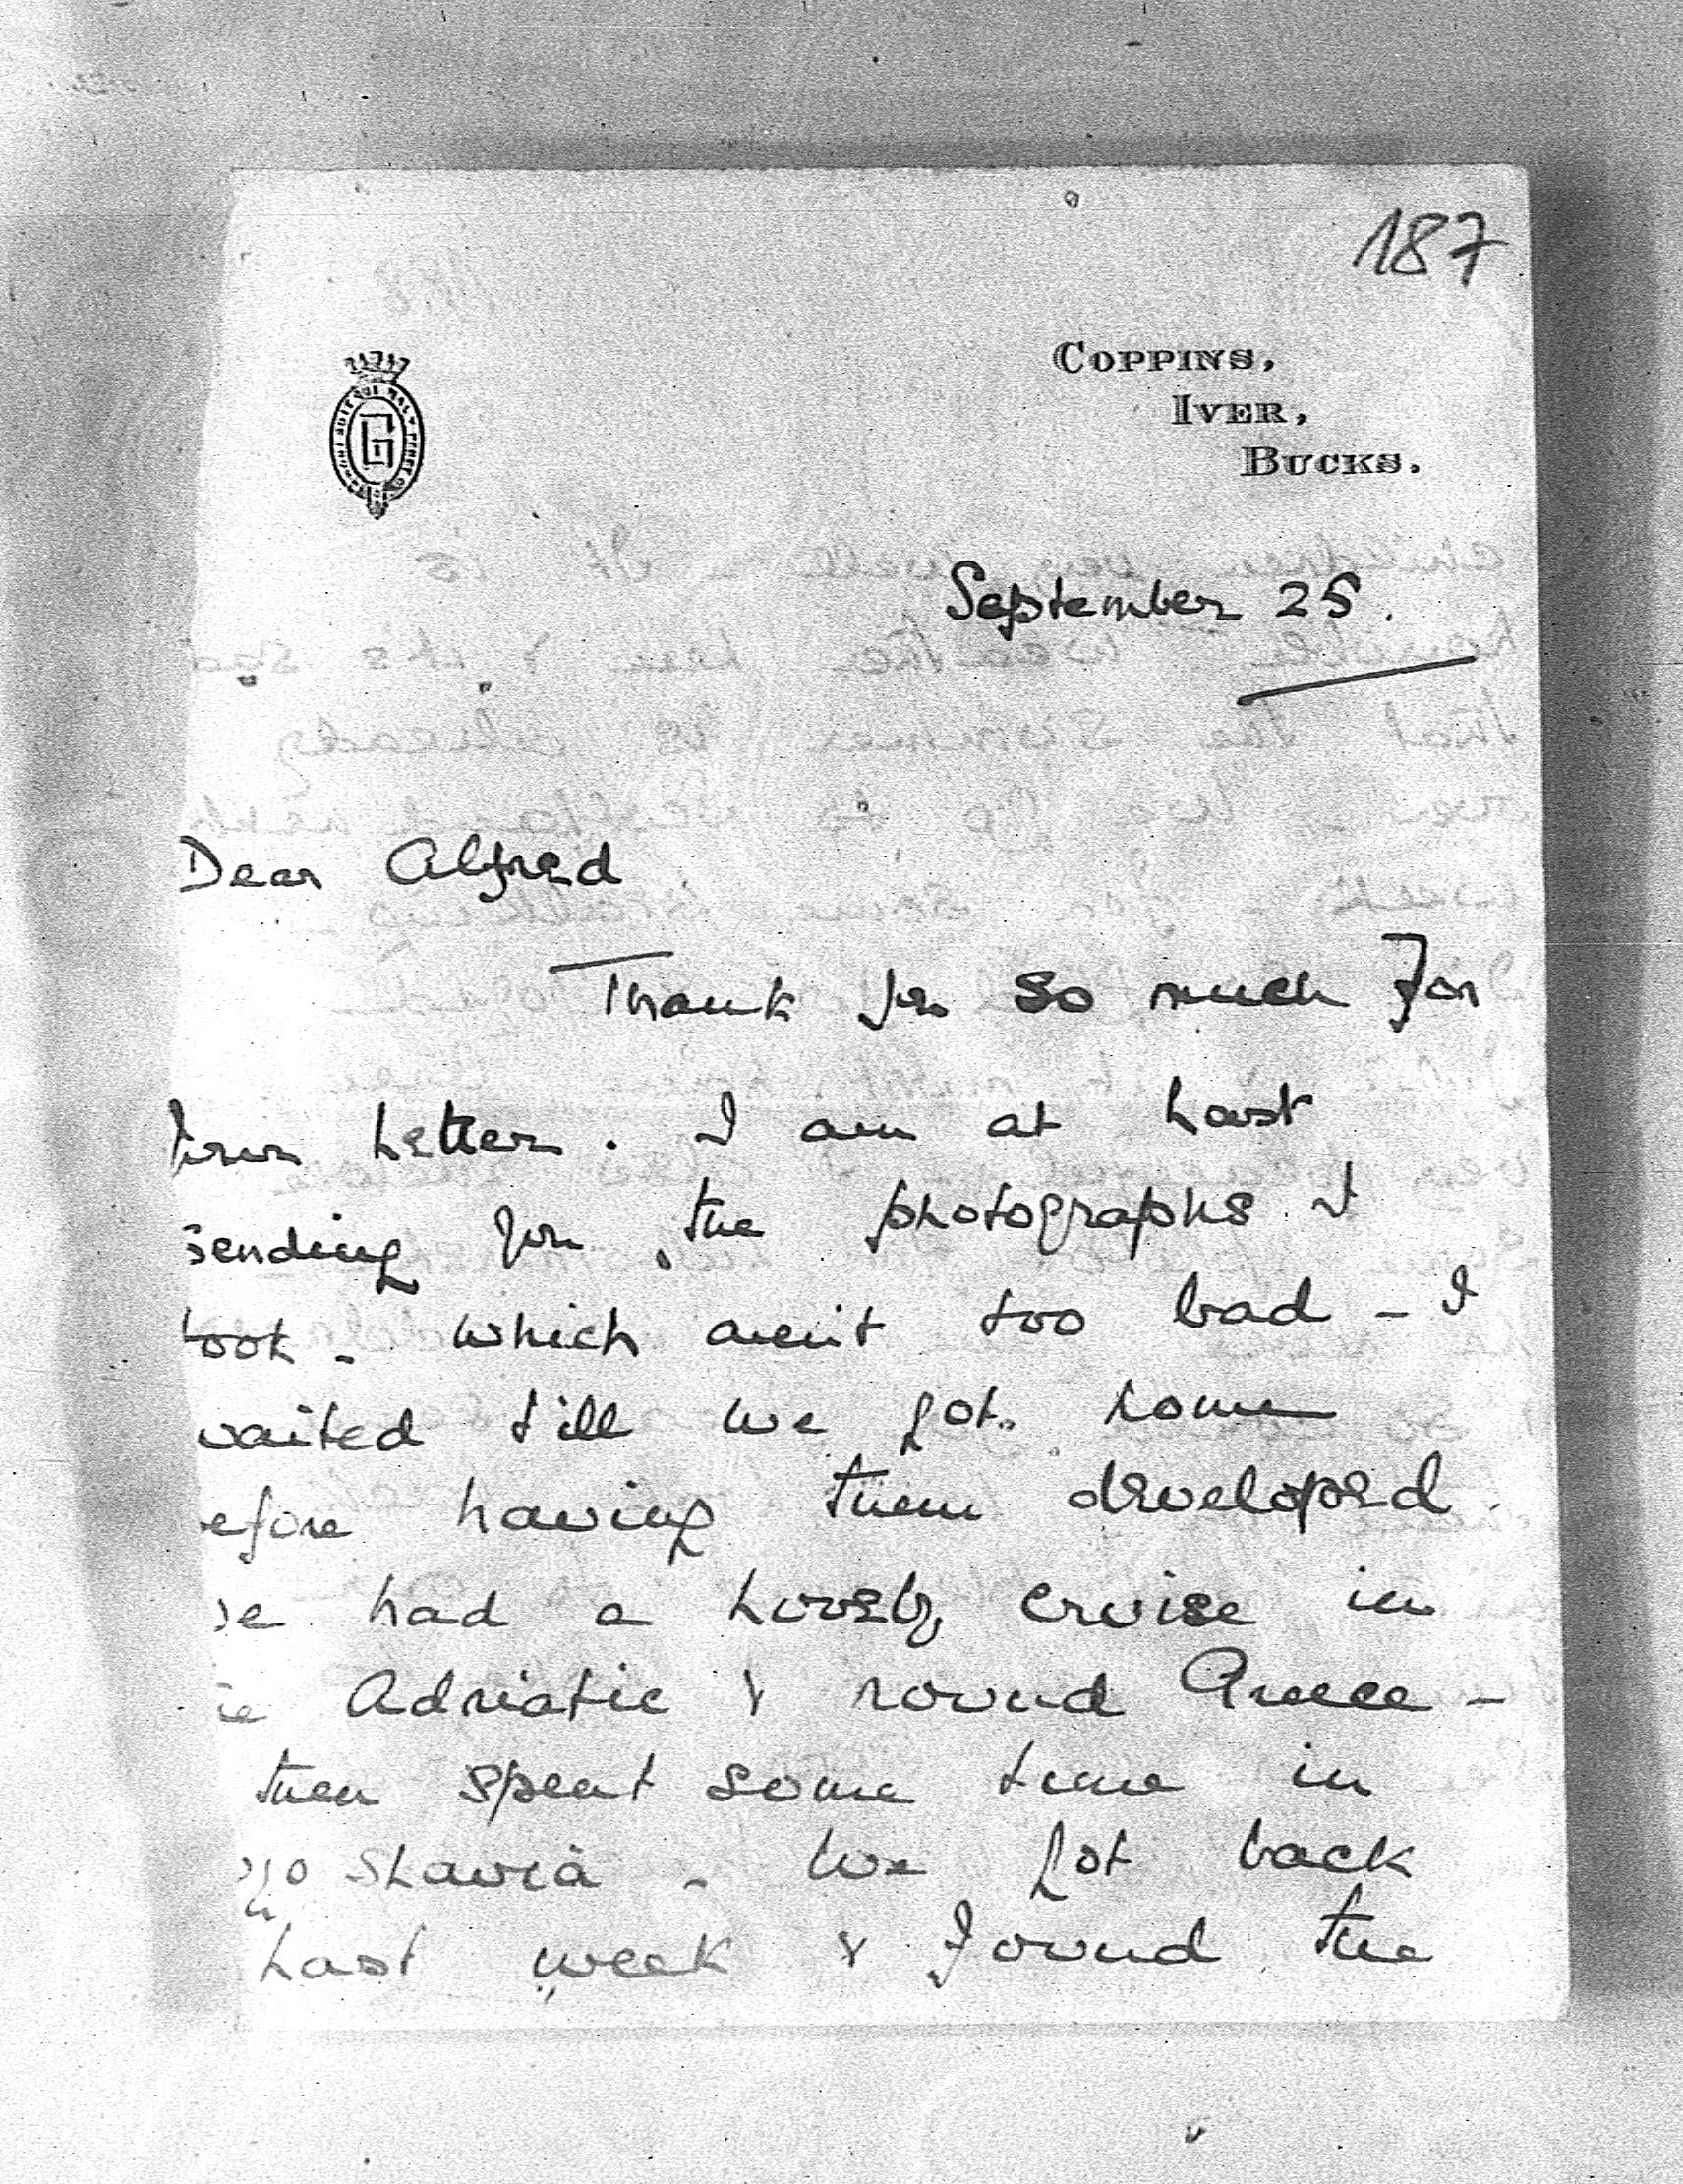 187
COPPINS,
IVER,
BUCKS.
G
September 25.
Dear Alfred
Thank you so much for
your letter. I am at last
sending you the photographs I
took - which aren't too bad - I
waited till we got home
efore having them developed.
e had a lovely cruise in
e Adriatic & round Greece -
then spent some time in
go slavia - We got back
last week & found the